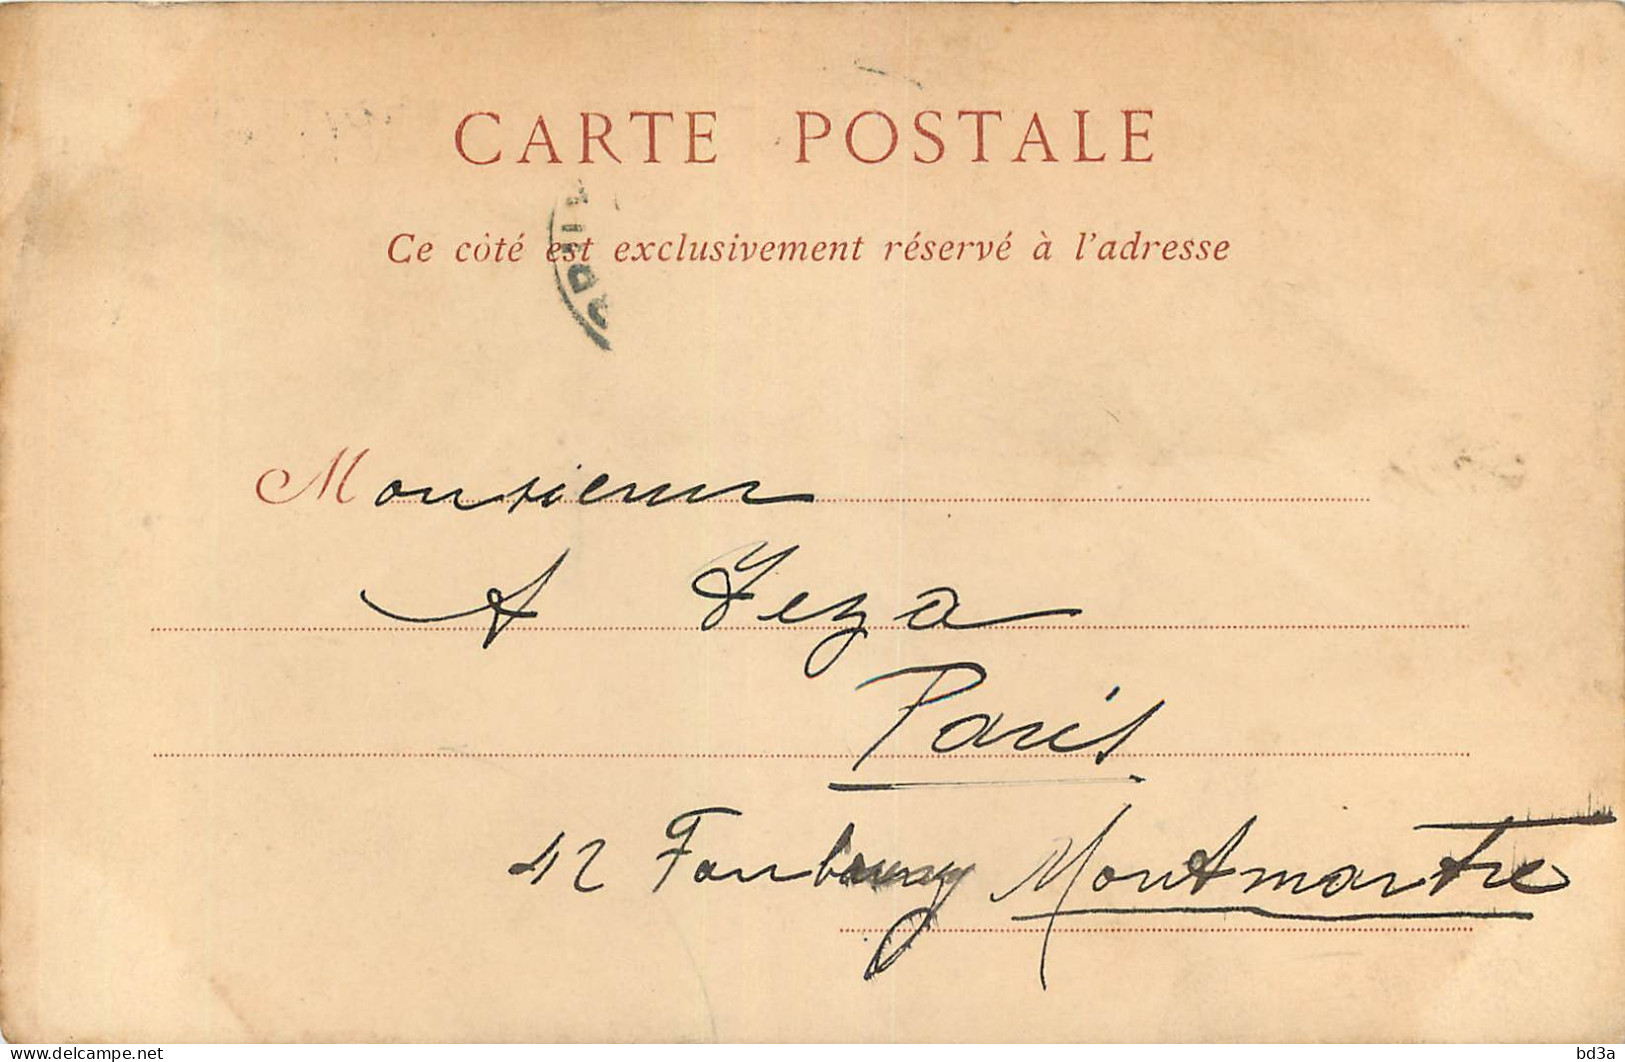 CARTE POSTALE
Ce côté est exclusivement réservé à l'adresse
Monsieur
A Yeza
Paris
42 Faubourg Montmartre
bd3a